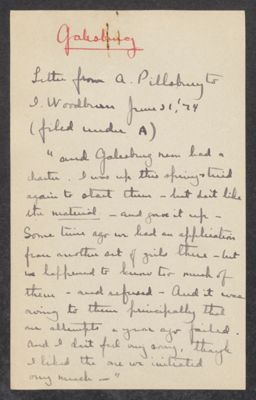 Galesburg
Letter from A. Pillsbury to
I. Woodburn June 21, '74
(filed under A)
"and Galesburg near had a
charter. I was up this spring & tried
again to start them - but don't like
the material - and gave it up -
Some time ago we had an application
from another set of girls there - but
we happened to know too much of
them - and refused - And it was
owing to them principally that
our attempts a year ago failed.
and I don't feel any sorry, though
I liked the one we initiated
very much - "